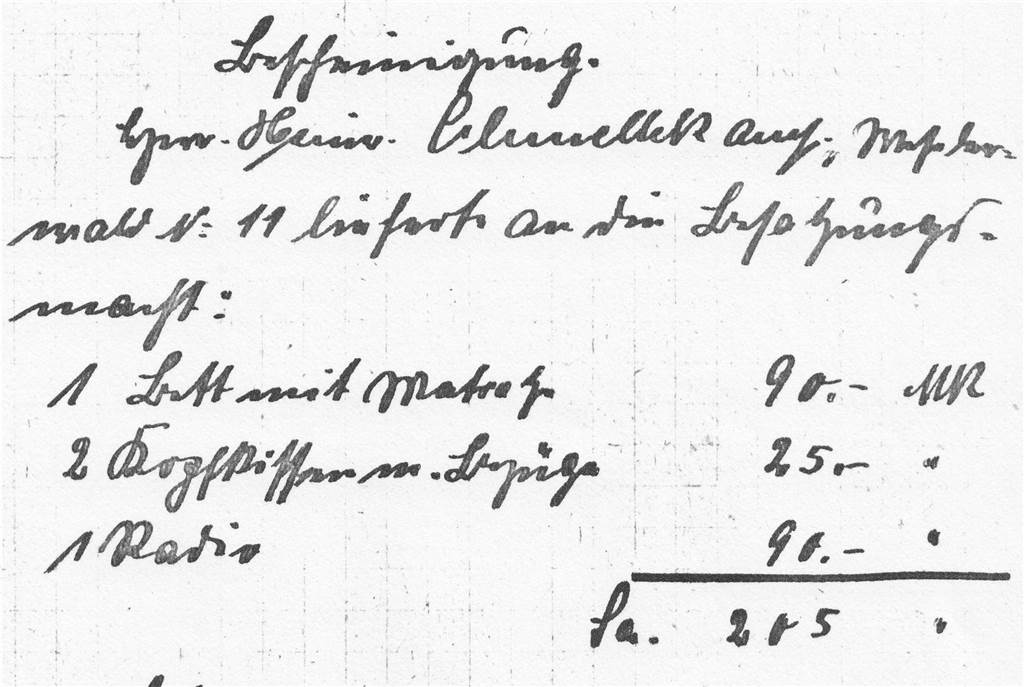 Bescheinigung.
Herr. Heinr.
wald N: 11 lieferte an die Besatzungs-
macht:
1 Bett mit Matratze 90.- MK
2 Kopfkissen m. Bezüge 25.- "
1 Radio 90.- "
Sa. 205 "